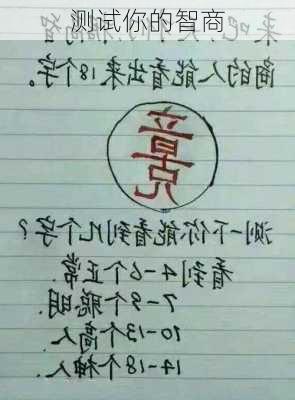 测试你的智商
来吧 高智
商的人能看出来18个字。
测一下你能看到几个字？
看到4-6个正常.
7-9个聪明.
10-13个高人
14-18个神人.